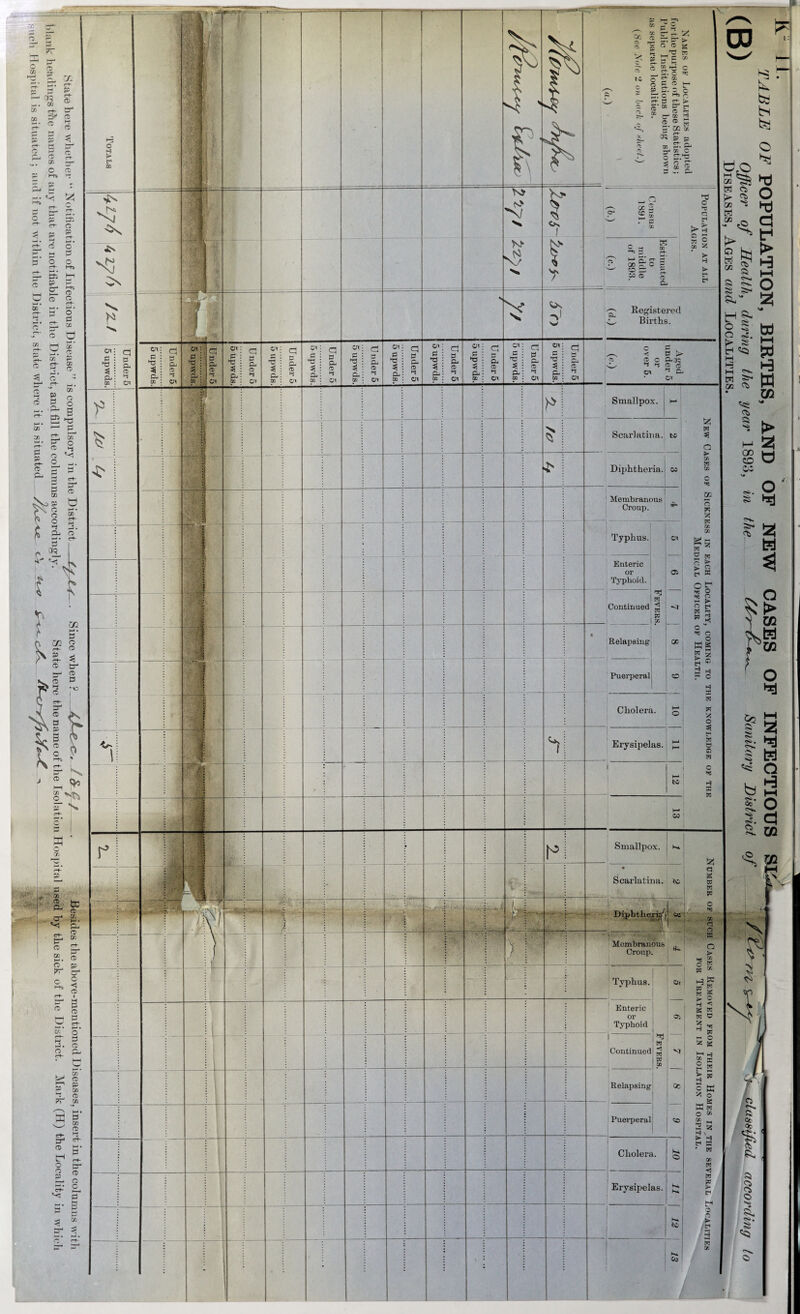 K—11.
(B) TABLE OF POPULATION, BIRTHS, AND OF NEW CASES OF INFECTIOUS
Officer of Health, during the year 1893, in the Urban Sanitary District of Romsey classified according to
DISEASES, AGES and LOCALITIES.
NAMES OF LOCALITIES adopted
for the purpose of these Statistics;
Public Institutions being shown
as separate localities.
(See Note 2 on back of sheet.)
(a.)
POPULATION AT ALL
AGES.
Census
1891.
(b.)
Estimated
to
middle
of 1893.
(c.)
Registered
Births.
(d.)
Aged
under 5
or
over 5.
(e.)
NEW CASES OF SICKNESS IN EACH LOCALITY, COMING TO THE KNOWLEDGE OF THE
MEDICAL OFFICER OF HEALTH.
Smallpox. 1
Scarlatina. 2
Diphtheria. 3
Membranous
Croup. 4
Typhus. 5
Enteric
or
Typhoid. 6
Continued 7
Relapsing 8
Puerperal 9
FEVERS.
Cholera. 10
Erysipelas. 11
12
13
NUMBER OF SUCH CASES REMOVED FROM THEIR HOMES IN THE SEVERAL LOCALITIES
FOR TREATMENT IN ISOLATION HOSPITAL.
Smallpox. 1
Scarlatina. 2
Diphtheria 3
Membranous
Croup. 4
Typhus. 5
Enteric
or
Typhoid 6
Continued 7
Relapsing 8
Puerperal 9
FEVERS.
Cholera. 10
Erysipelas. 11
12
13
Romsey Infra
Under 5
5 upwds. 2 10 4 5 2
Romsey Extra
Under 5
5 upwds.
Under 5
5 upwds.
Under 5
5 upwds.
Under 5
5 upwds.
Under 5
5 upwds.
Under 5
5 upwds.
Under 5
5 upwds.
Under 5
5 upwds.
Under 5
5 upwds.
TOTALS 4276 4276 121
Under 5
5 upwds. 2 10 4 5 2
State here whether “Notification of Infectious Disease” is compulsory in the District Since when? Dec. 1891
Besides the above-mentioned Diseases, insert in the columns with
blank headings the names of any that are notifiable in the District, and fill the columns accordingly.
State here the name of the Isolation Hospital used by the sick of the District. Mark (H) the Locality in which
such Hospital is situated; and if not within the District, state where it is situated There is no such Hospital